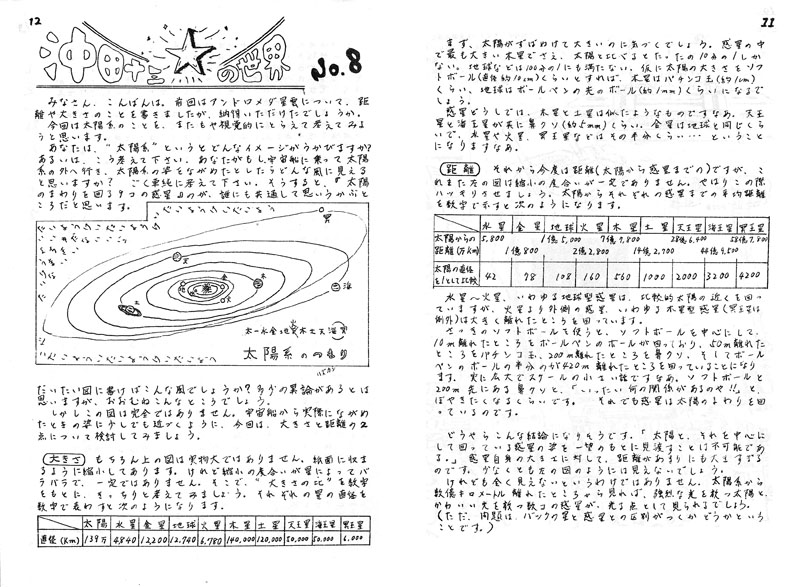 12
沖田十三☆の世界 No.8
みなさん、こんばんは。前回はアンドロメダ星雲について、距
離や大きさのことを書きましたが、納得いただけたでしょうか。
今回は太陽系のことを、またもや視覚的にとらえて考えてみよ
うと思います。
あなたは、“太陽系”というとどんなイメージがうかびますか？
あるいは、こう考えて下さい。あなたがもし宇宙船に乗って太陽
系の外へ行き、太陽系の姿をながめたとしたらどんな風に見える
と思いますか？ ごく単純に考えて下さい。そうすると、『太陽
のまわりを回る9つの惑星』のが、誰にも共通して思いうかぶと
ころだと思います。
冥
海
太―水金地火木土天海冥
太陽系の
だいたい図に書けばこんな風でしょうか？多少の異論があるとは
思いますが、おおむねこんなところでしょう。
しかしこの図は完全ではありません。宇宙船から実際にながめ
たときの姿に少しでも近づくように、今回は、大きさと距離の2
点について検討してみましょう。
大きさ もちろん上の図は実物大ではありません。紙面に収ま
るように縮小してあります。けれど縮小の度合いが星によってバ
ラバラで、一定ではありません。そこで、“大きさの比”を数字
をもとに、きっちりと考えてみましょう。それぞれの星の直径を
数字で表わすと次のようになります。
太陽 水星 金星 地球 火星 木星 土星 天王星 海王星 冥王星
直径(Km) 139万 4,840 12,200 12,740 6,780 140,000 120,000 50,000 50,000 6,000
11
まず、太陽がずばぬけて大きいのに気づくでしょう。惑星の中
で最も大きい木星でさえ、太陽と比べてたったの10分の1しか
ない。地球などは100分の1にも満たない。仮に太陽の大きさをソフ
トボール(直径約10cm)くらいとすれば、木星はパチンコ玉(約1cm)
くらい、地球はボールペンの先のボール(約1mm)くらいになるで
しょう。
惑星どうしでは、木星と土星は似たようなものですなあ。天王
星と海王星が共に鼻クソ(約5mm)くらい。金星は地球と同じくら
いで、水星や火星、冥王星などはその半分くらい……ということ
になりますなあ。
距離 それから今度は距離(太陽から惑星までの)ですが、こ
れまた左の図は縮小の度合いが一定でありません。やはりこの際
ハッキリさせましょう。太陽からそれぞれの惑星までの平均距離
を数字で示すと次のようになります。
水星 金星 地球 火星 木星 土星 天王星 海王星 冥王星
太陽からの距離(万Km) 5,800 1億800 1億5,000 2億2,800 7億7,800 14億2,700 28億6,400 44億9,500 58億7,800
太陽の直径を1として比較 42 78 108 160 560 1000 2000 3200 4200
水星～火星、いわゆる地球型惑星は、比較的太陽の近くを回っ
ていますが、火星より外側の惑星、いわゆる木星型惑星(冥王星は
例外)は大きく離れたところを回っています。
さっきのソフトボールを使うと、ソフトボールを中心にして、
10m離れたところをボールペンのボールが回っており、50m離れた
ところをパチンコ玉、200m離れたところを鼻クソ、そしてボール
ペンのボールの半分のが420m離れたところを回っていることになり
ます。実に広大でスケールの小さい話ですなあ。ソフトボールと
200m先にある鼻クソと、「いったい何の関係があるのや!!」と、
ぼやきたくなるくらいです。 それでも惑星は太陽のまわりを回
っているのです。
どうやらこんな結論になりそうです。「太陽と、それを中心に
して回っている惑星の姿を一望のもとに見渡すことは不可能であ
る。」惑星自身の大きさに対して、距離があまりにも大きすぎる
のです。少なくとも左の図のようには見えないでしょう。
けれども全く見えないというわけではありません。太陽系から
数億キロメートル離れたところから見れば、強烈な光を放つ太陽と、
かわいい光を放つ数コの惑星が、光る点として見られるでしょう。
(ただ、問題は、バックの星と惑星との区別がつくかどうかという
ことです。)